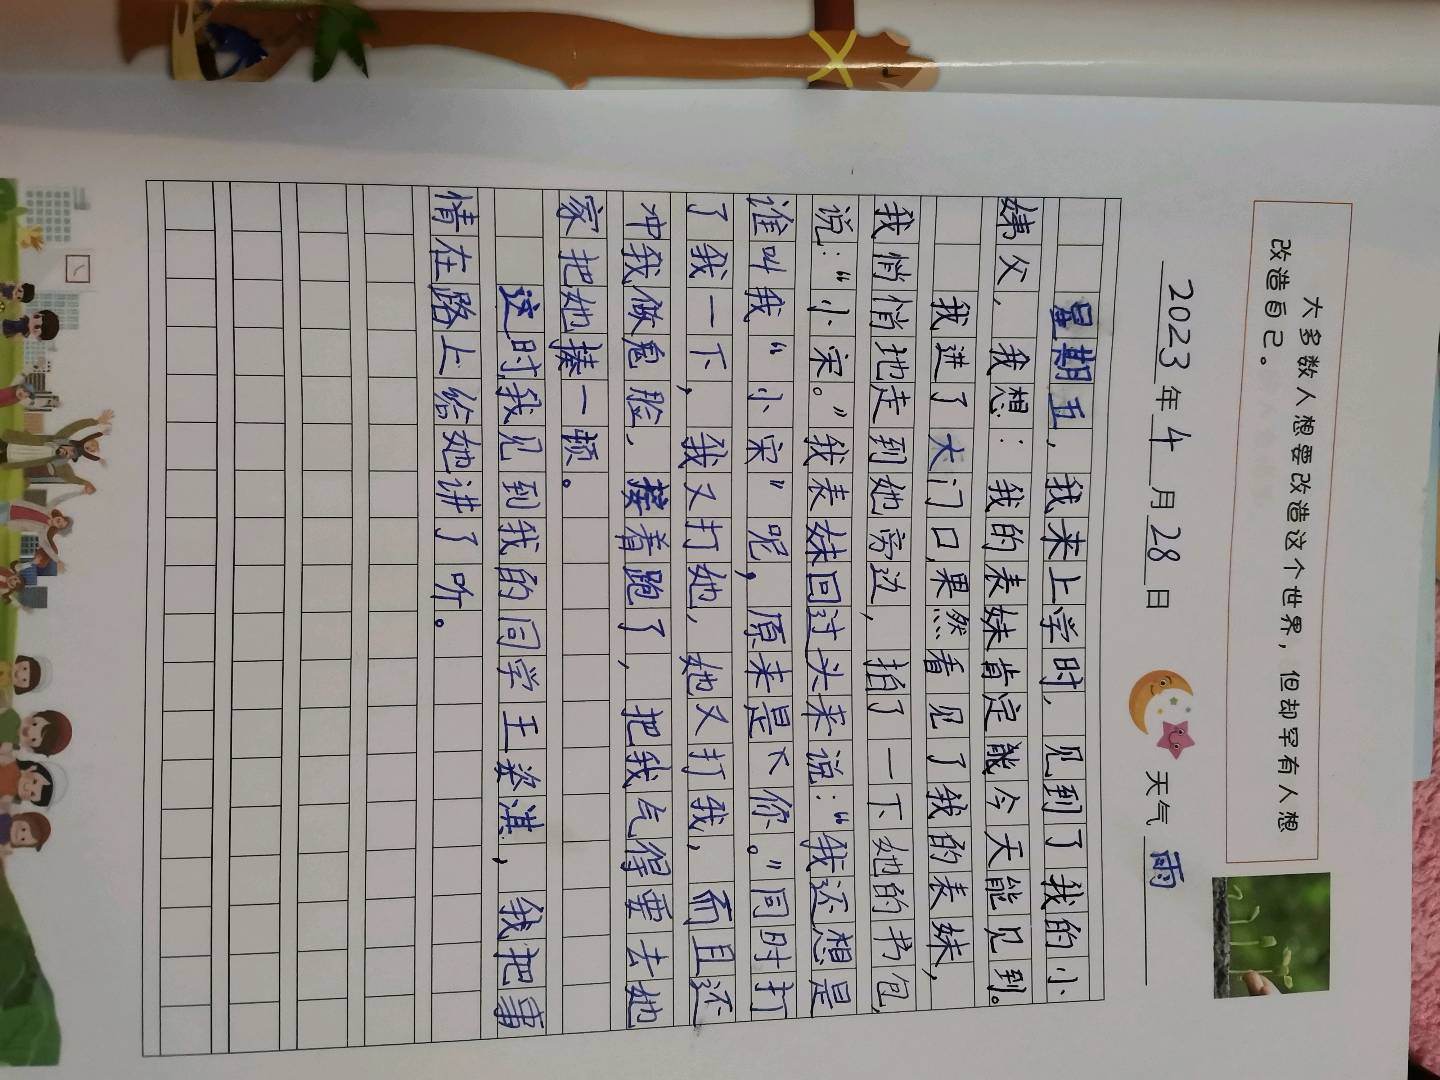 大多数人想要改造这个世界，但却罕有人想
改造自己。
2023年4月28日 天气 雨
星期五，我来上学时，见到了我的小
姨父，我想：我的表妹肯定能今天能见到。
我进了大门口，果然看见了我的表妹，
我悄悄地走到她旁边，拍了一下她的书包，
说：“小宋。”我表妹回过头来说：“我还想是
谁叫我“小宋”呢，原来是你。”同时打
了我一下，我又打她，她又打我，而且还
冲我做鬼脸，接着跑了，把我气得要去她
家把她揍一顿。
这时我见到我的同学王姿淇，我把事
情在路上给她讲了听。